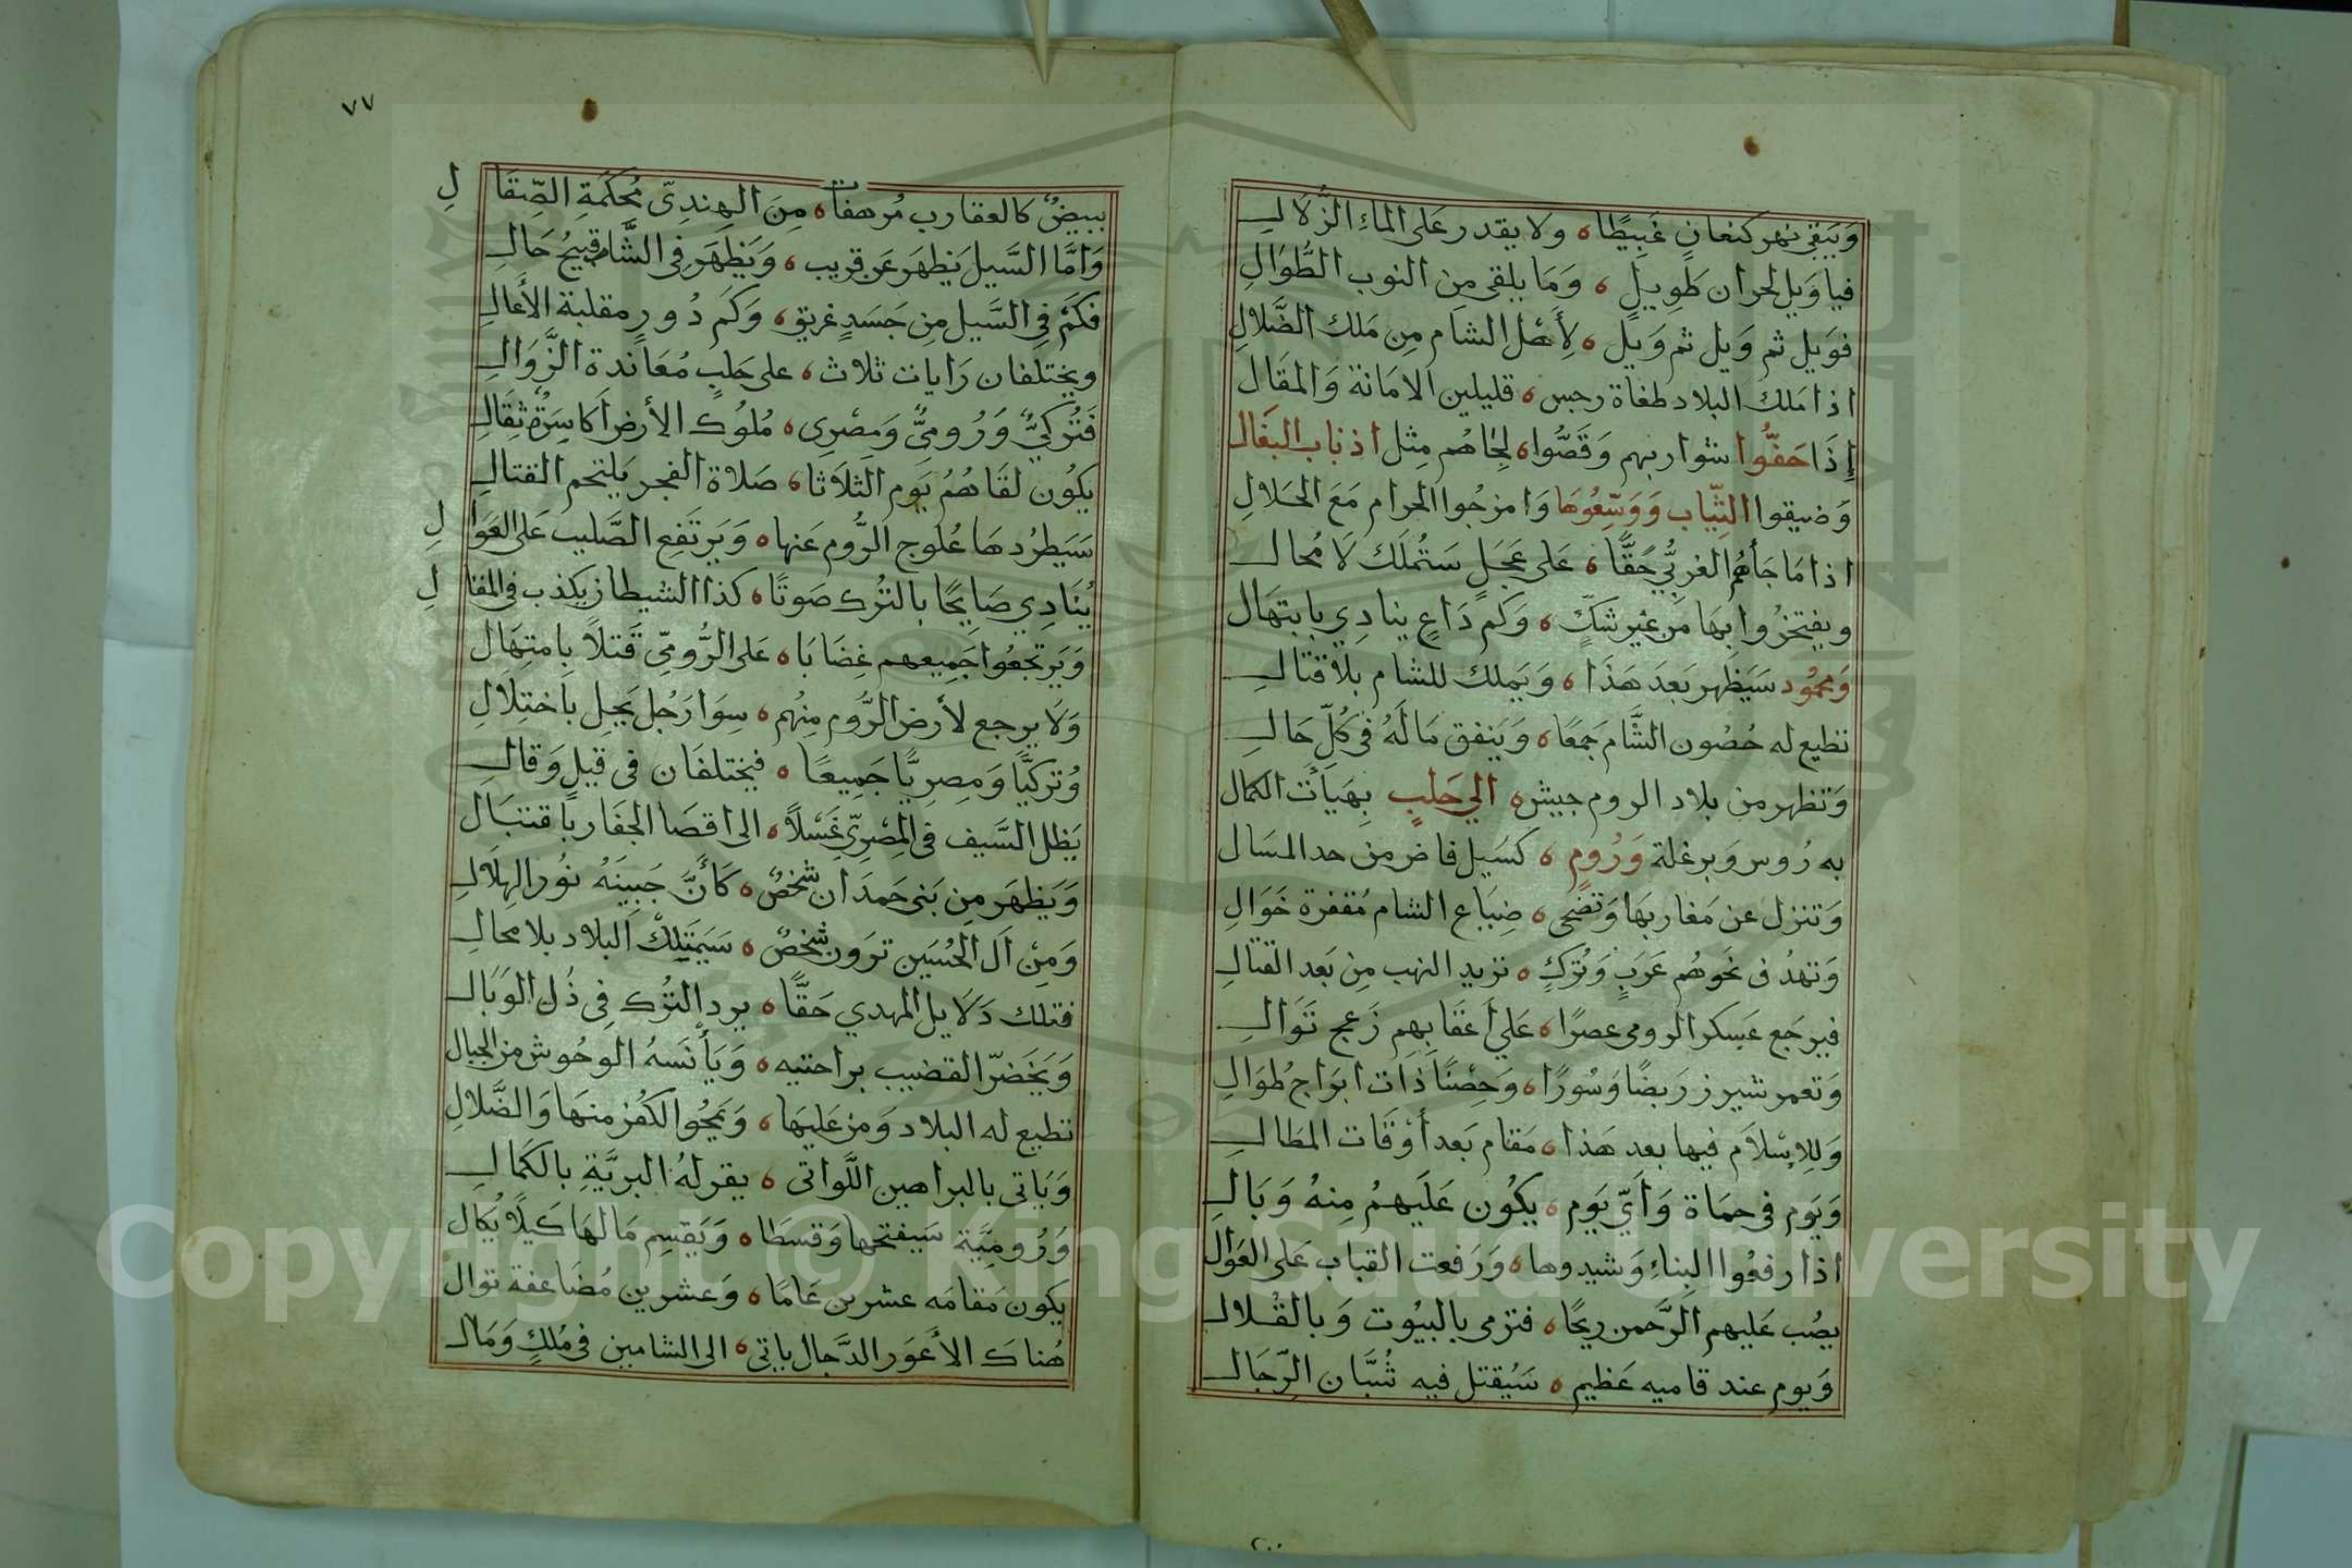 وَيَبقى نهر كنعانٍ غَبِيطًا ه ولا يقدر عَلى الماءِ الزُّلَالِ
فيا وَيل لحران طَوِيلٍ ه وَمَا يلقى مِن النوب الطُّوَالِ
فوَيل ثم وَيل ثم وَيل ه لِأَهل الشام مِن مَلك الضَّلالِ
اذا مَلك البلاد طغاة رجس ه قليلين الامَانة وَالمقَال
إِذَا حَفُّوا شواربهم وَقَصُّوا ه لِحَاهُم مِثل اذناب البغَال
وَضيقوا الثِّيَاب وَوَسِّعُوهَا وَامزجُوا الحرام مَعَ الحَلالِ
اذا مَا جَأَهُم الغربيُّ حَقًّا ه عَلى عَجَلٍ سَتُملَك لَا مُحال
ويفتخرُوا بهَا مِن غَير شكٍّ ه وَكم دَاعٍ ينادِي بابتهَال
وَمحمُود سَيَظهر بَعدَ هَذَا ه وَيَملك للشام بلاقتالِ
تطيع له حُصُون الشَّام جَمعًا ه وَيَنفق مَالَهُ في كُلِّ حَالِ
وَتظهر من بلاد الروم جيش ه الي حَلبٍ بِهَيأت الكمال
به رُوس وَبرغلة وَرُومٍ ه كسَيل فاض من حد المسَال
وَتنزل عن مَغاربهَا وَتضحى ه ضِيَاع الشام مُقفرة خَوَالِ
وَتهدُ في نحوهُم عَرَبٍ وَتُركٍ ه تزيد النهب مِن بَعد القتالِ
فيرجَع عَسكر الرومى عصرًا ه عَلي أعقَابهِم زَعج تَوَالِ
وَتعمر شيرز رَبضًا وَسُورًا ه وَحِصْنًا ذَات ابوَاج طُوَالِ
وَلِلاِسْلَام فيها بعد هَذا ه مَقام بَعد أَوْقَات المطَالِ
وَيَوم في حَمَاة وَأَيّ يَوم ه يكُون عَلَيهمُ مِنهُ وَبَالِ
اذا رفعُوا البناءِ وَشيدوها ه وَرَفعت القباب عَلى العَوَالِ
يصُب عَليهم الرَّحمن ريحًا ه فترمى بالبيُوت وَبالقُلالِ
وَيوم عند قاميه عَظيم ه سَيُقتل فيه شُبَّان الرِّجَالِ
٧٧
ببيضٌ كالعقارب مُرهفات ه مِنَ الهِندِىّ مُحكَمَةِ الصِّقَالِ
وَامَّا السَّيل يَظهَر عَن قريب ه وَيَظهَر في الشَّام قبِيحُ حَالِ
فكَمْ فِي السَّيل مِن جَسَدٍ غريق ه وَكَم دُورٍ مقلبة الأَعَالِ
ويختلفان رَايات ثلاث ه على حَلبٍ مُعَاندة الزَّوَالِ
فَتُركيٌّ وَرُوميٌّ وَمِصْرِى ه مُلوُك الأرض أكاسِرَةٌ ثِقَالِ
يكُون لقَاهُمُ يَوم الثلَاثا ه صَلاة الفجر يَلتحم القتالِ
سَيَطرُدهَا عُلوج الرُّوم عَنها ه وَيَرتَفع الصَّليب عَلى العَوَالِ
يُنَادِي صَايحًا بالتُرك صَوتًا ه كذا الشيطان يكذب في المقالِ
وَيَرتجعُوا جَمِيعهم غِضَابَا ه عَلى الرُّومِّى قَتلاً بامتِهَال
وَلَا يرجع لأرض الرُّوم مِنهُم ه سِوَا رَجُل يَجل باختِلَالِ
وُتركيًّا وَمِصريًّا جَمِيعًا ه فيختلفَان في قيلٍ وَقالِ
يَظل السَّيف في المِصرِيّ غَسْلاً ه الى اقصَا الجفَار باقتبَال
وَيَظهَر مِن بَنى حَمدَان شخصٌ ه كَأنَّ جَبِينَهُ نوُر الهِلَالِ
وَمِنْ آل الحُسَين ترَون شخصٌ ه سَيَمتَلِك البلاد بلا محالِ
فتلك دَلَايل المهدي حَقًّا ه يرد التُرك فِى ذُل الوَبَالِ
وَيَخَضرّ القضيب براحتيه ه وَيَأْنَسهُ الوحُوش من الجبال
تطيع له البلاد وَمن عَليهَا ه وَيَمحُوا الكفر منهَا وَالضَّلالِ
وَيَاتى بالبراهين اللَّوَاتى ه يقر لهُ البريَّةِ بالكَمَالِ
وَرُومِيَّة سَيفتحها وَقسطَا ه وَيَقسِم مَالهَا كَيلًا يُكال
يكون مَقامَه عشرين عَامًا ه وَعشرين مُضَاعفة توال
هُناك الأَعوَر الدَّجال ياتِى ه الى الشامين في مُلكٍ وَمَالِ
Copyright © King Saud University